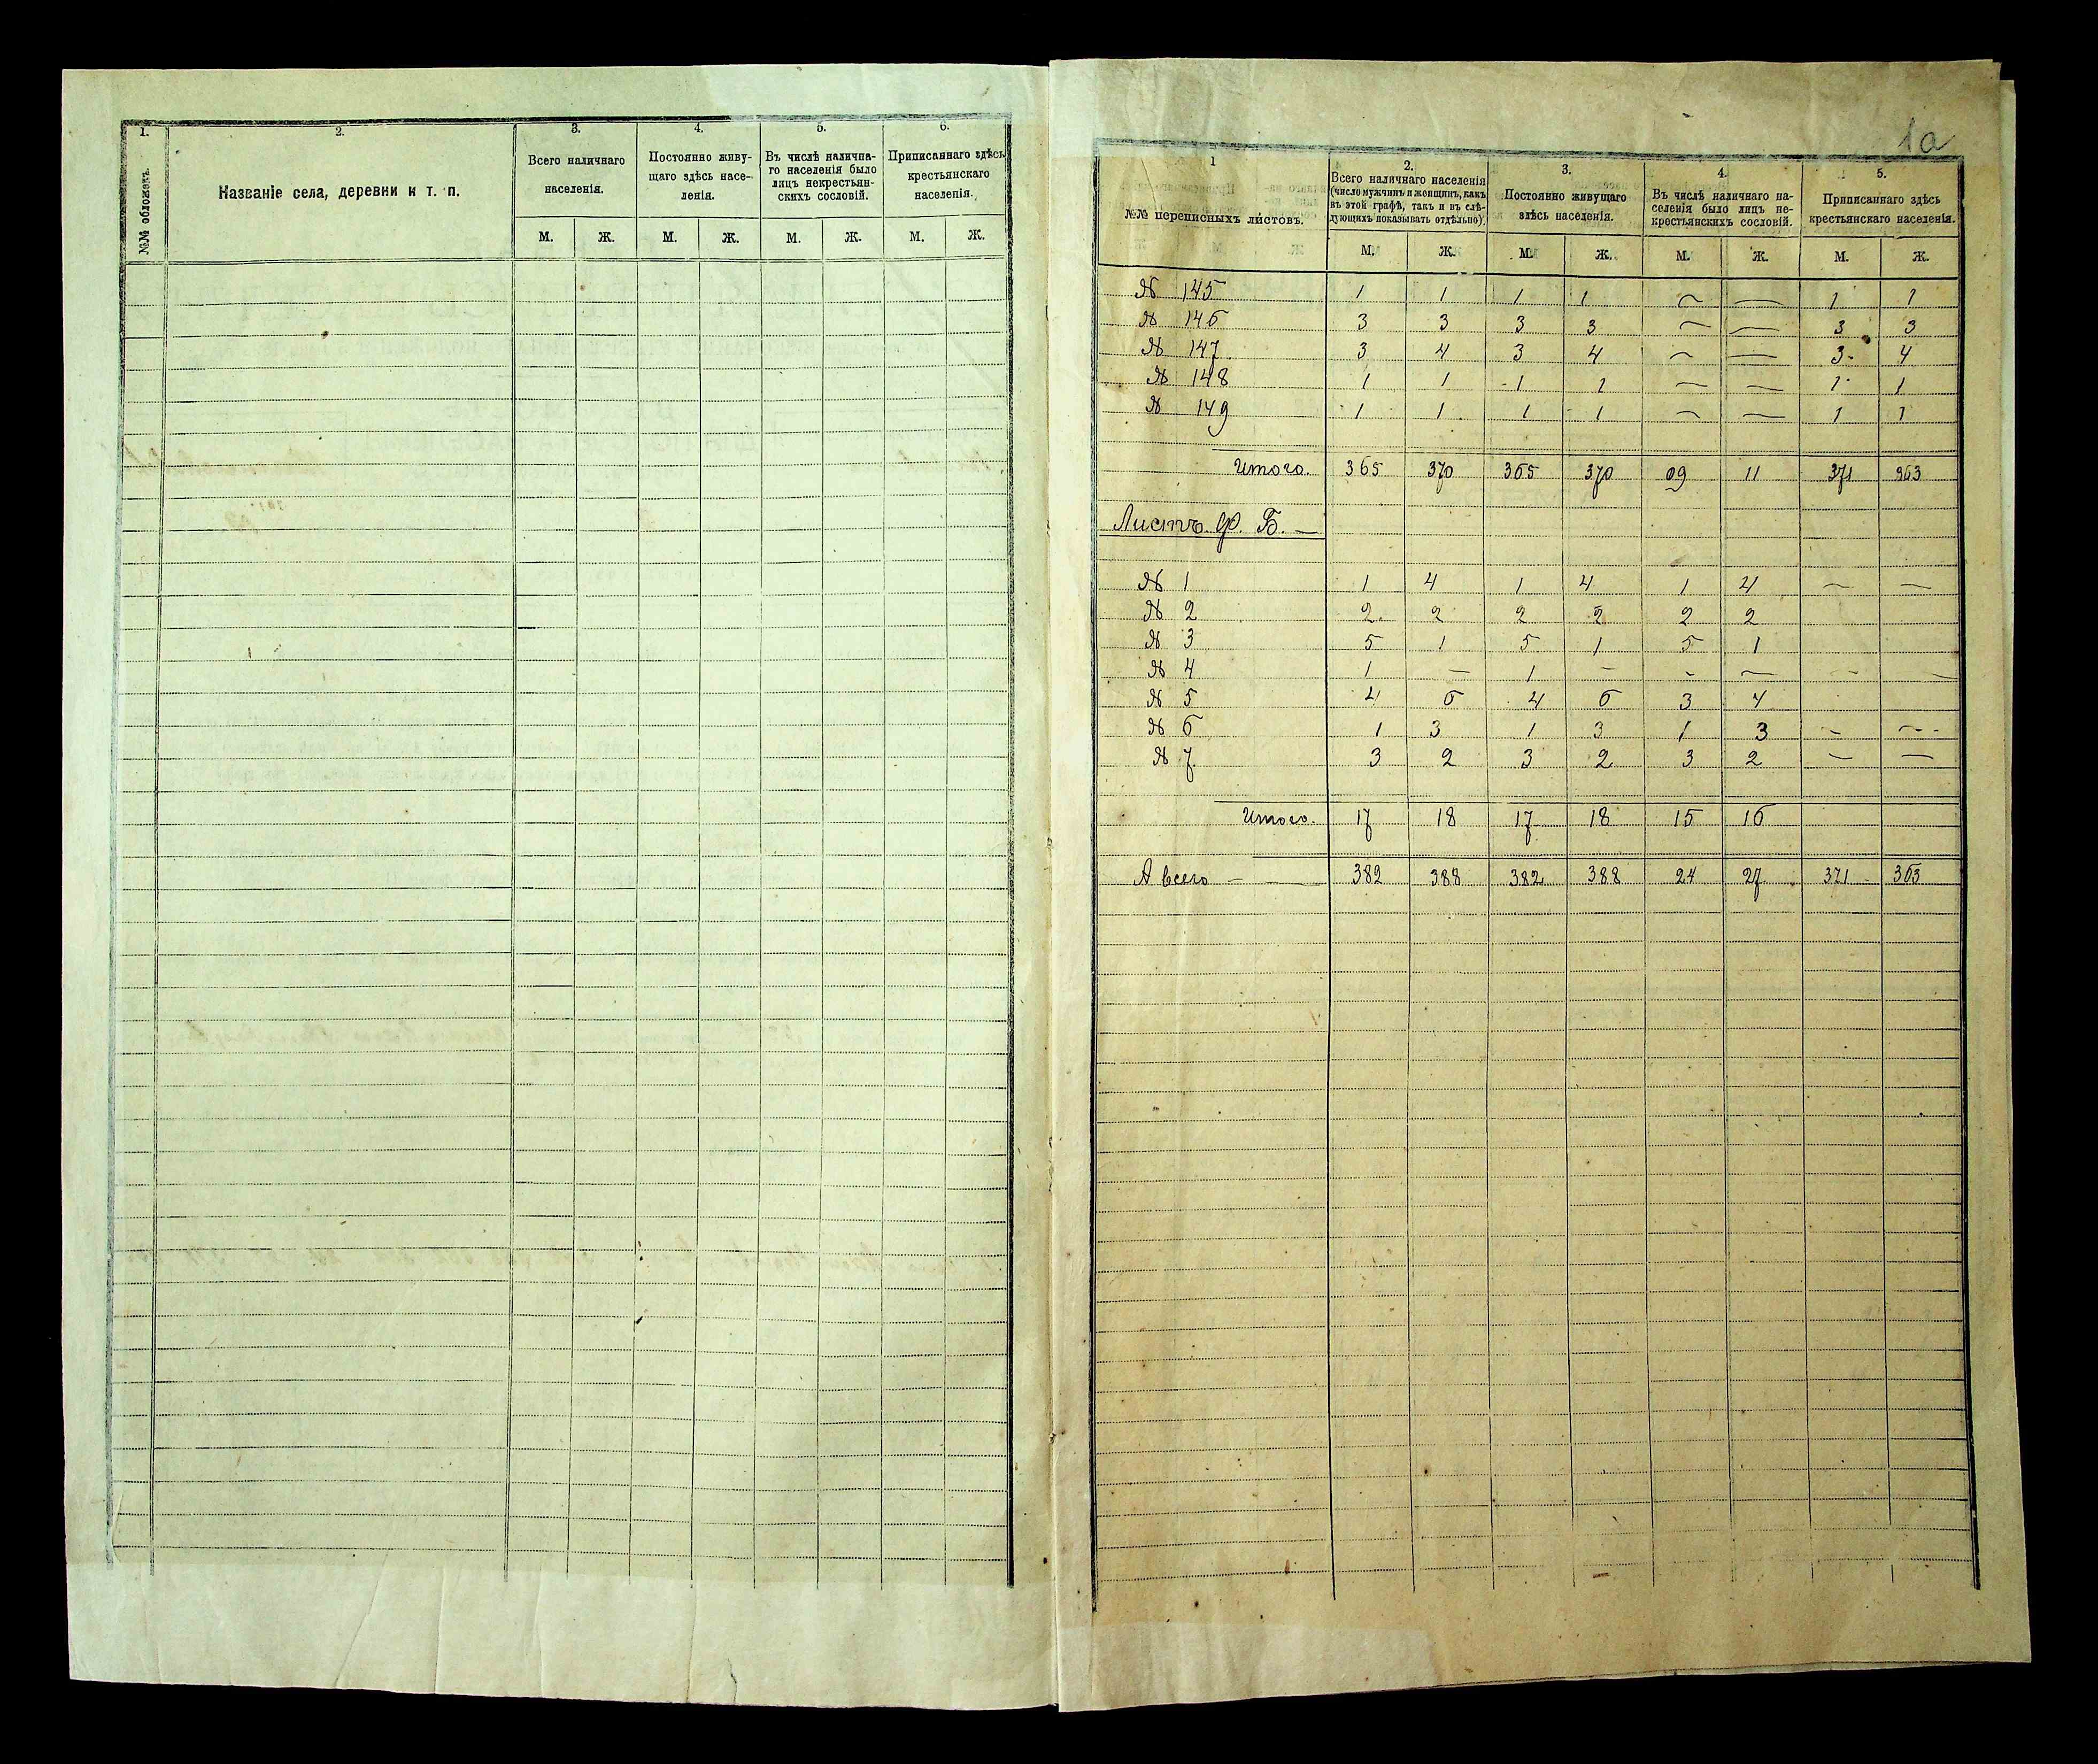 1. 2. 3. 4. 5. 6.
№№ обложекъ.
Названіе села, деревни и т. п.
Всего наличнаго
населенія.
Постоянно живу-
щаго здѣсь насе-
ленія.
Въ числѣ налична-
го населенія было
лицъ некрестьян-
скихъ сословій.
Приписаннаго здѣсь
крестьянскаго
населенія.
М. Ж. М. Ж. М. Ж. М. Ж.
1а
1 2. 3. 4. 5.
№№ переписныхъ листовъ.
Всего наличнаго населенія
(число мужчинъ и женщинъ, какъ
въ этой графѣ, такъ и въ слѣ-
дующихъ показывать отдѣльно)
Постоянно живущаго
здѣсь населенія.
Въ числѣ наличнаго на-
селенія было лицъ не-
крестьянскихъ сословій.
Приписаннаго здѣсь
крестьянскаго населенія.
М. Ж. М. Ж. М. Ж. М. Ж.
№ 145 1 1 1 1 — — 1 1
№ 146 3 3 3 3 — — 3 3
№ 147 3 4 3 4 — — 3 4
№ 148 1 1 1 1 — — 1 1
№ 149 1 1 1 1 — — 1 1
Итого. 365 370 365 370 09 11 371 363
Листъ Ф. Б. —
№ 1 1 4 1 4 1 4 — —
№ 2 2 2 2 2 2 2
№ 3 5 1 5 1 5 1
№ 4 1 — 1 — — — — —
№ 5 4 6 4 6 3 4
№ 6 1 3 1 3 1 3 — —
№ 7 3 2 3 2 3 2 — —
Итого. 17 18 17 18 15 16
А всего — 382 388 382 388 24 27 371 363